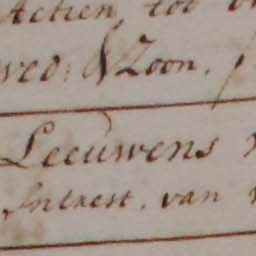 Actien, tot
wed: & Zoon.
Leeuwens
Intrest. van